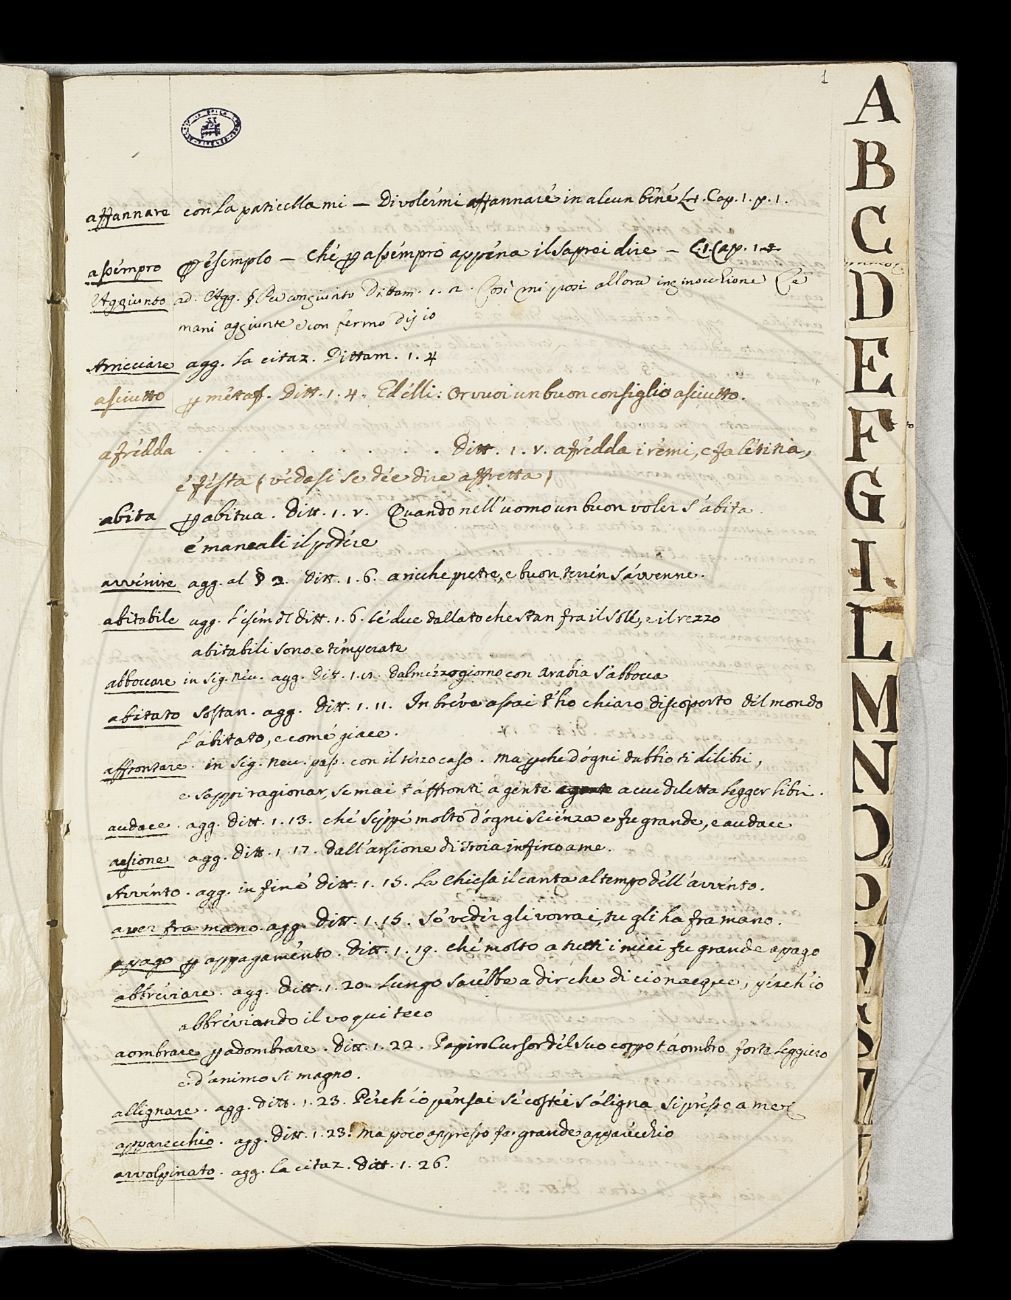 1
affannare con la paticella mi — Di volermi affannare in alcun bene L.1. Cap. 1. p. 1.
asempro p esemplo — Che p asempro appena il saprei dire — L.1. Cap. 1.
Aggiunto ad. Agg. § Per congiunto Dittam. 1. 2. Così mi posi allora inginocchione Le
mani aggiunte e con fermo disio
Arricciare agg. la citaz. Dittam. 1. 4
asciutto p metaf. Ditt. 1. 4. Ed elli: Or vuoi un buon consiglio asciutto.
afredda . . . . . . . Ditt. 1. v. afredda i remi, e fa letitia,
e festa (vedasi se dee dire affretta)
abita p abitua. Ditt. 1. v. Quando nell'uomo un buon voler s'abita
e mancali il podere
avvenire agg. al § 2. Ditt. 1. 6. a ricche pietre, e buon terren s'avvenne.
abitabile agg. l'esem dl Ditt. 1. 6. Le due dallato che stan fra il sole, e il rezzo
abitabili sono e temperate
abboccare in sig. neu. agg. Ditt. 1. Dal mezzogiorno con Arabia s'abbocca
abitato sostan. agg. Ditt. 1. 11. In breve assai t'ho chiaro, discoperto del mondo
l'abitato, e come giace.
affrontare. in sig. neu. pas. con il terzo caso. Ma pche d'ogni dubbio ti dilibri,
e sappi ragionar, se mai t'affronti a gente a cui diletta legger libri.
audace. agg. Ditt. 1. 13. che seppe molto d'ogni scienza e fu grande, e audace
arsione agg. Ditt. 1. 17. dall'arsione di Troia infino a me.
Avvento. agg. in fine Ditt. 1. 15. La Chiesa il canta al tempo dell'avvento.
aver fra mano. agg. Ditt. 1. 15. Se veder gli vorrai, tu gli ha fra mano.
apago p appagamento. Ditt. 1. 19. che molto a tutti i miei fu grande apago
abbreviare. agg. Ditt. 1. 20. Lungo sarebbe a dir che di cio nacque, perch'io
abbreviando il vo qui teco
aombrare p adombrare. Ditt. 1. 22. Papiro Cursor del suo corpo t'aombro forte leggiero
e d'animo si magno.
allignare. agg. Ditt. 1. 23. Perch'io pensai se costei s'aligna si presso a me
apparecchio. agg. Ditt. 1. 23. Ma poco appresso fa grande apparecchio
avvolpinato. agg. la citaz. Ditt. 1. 26.
A
B
C
D
E
F
G
I
L
M
N
O
P
Q
S
T